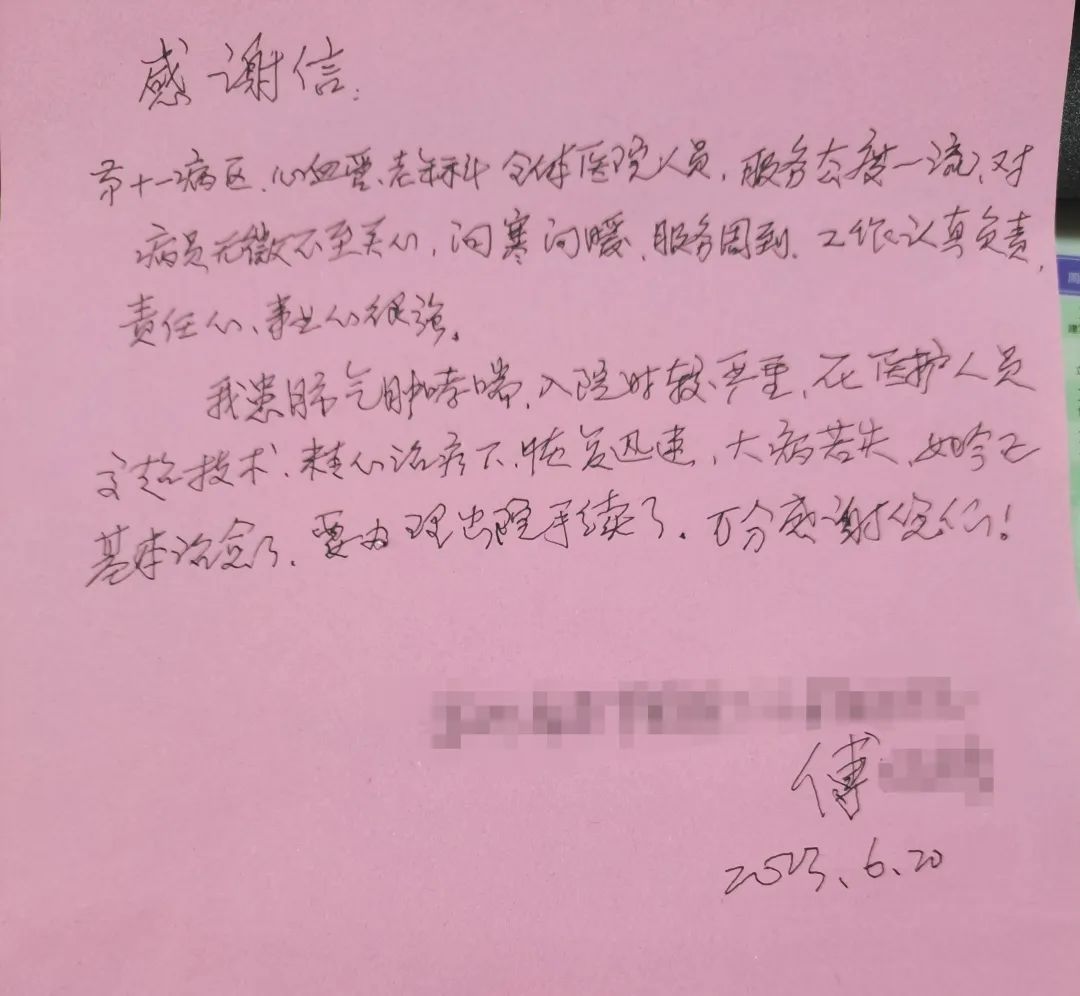 感谢信:
第十一病区、心血管、老年科全体医院人员,服务态度一流、对
病员无微不至关心,问寒问暖、服务周到、工作认真负责,
责任心、事业心很强。
我患肺气肿哮喘,入院时较严重,在医护人员
高超技术、精心治疗下,恢复迅速,大病若失,如今已
基本治愈了、要办理出院手续了。万分感谢您们!
傅
2023、6.20